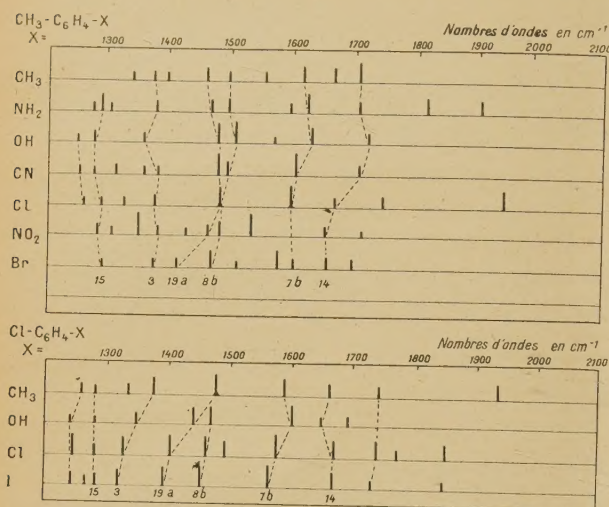 CH₃-C₆H₄-X
Nombres d'ondes en cm⁻¹
X =
1300 1400 1500 1600 1700 1800 1900 2000 2100
CH₃
NH₂
OH
CN
Cl
NO₂
Br
15 3 19a 8b 7b 14
Cl-C₆H₄-X
Nombres d'ondes en cm⁻¹
X =
1300 1400 1500 1600 1700 1800 1900 2000 2100
CH₃
OH
Cl
I
15 3 19a 8b 7b 14